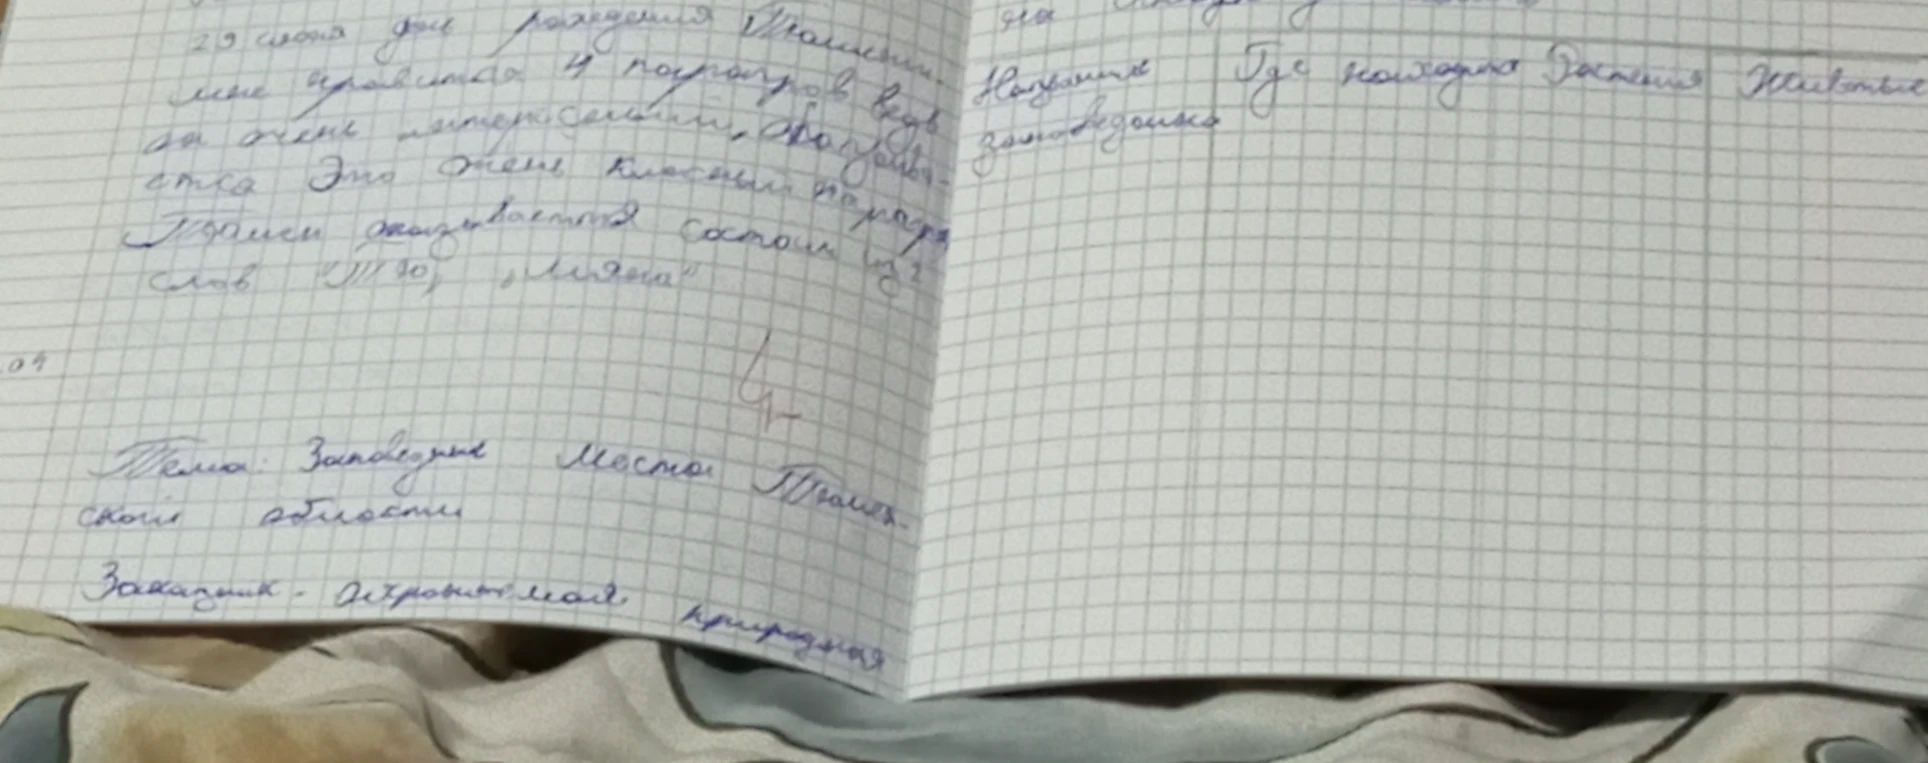 29 июля день рождения Тюмени.
мне нравится 4 параграф ведь
он очень интересный,
ства Это очень классный параграф
Тюмен оказывается состоит из 2
слов "Тю", "мяна"
04
4-
Тема: Заповедник места Тюмен-
ской области
Заказник - охраняемая природная
на
Название
заповедника
Где находится
Растения
Животные